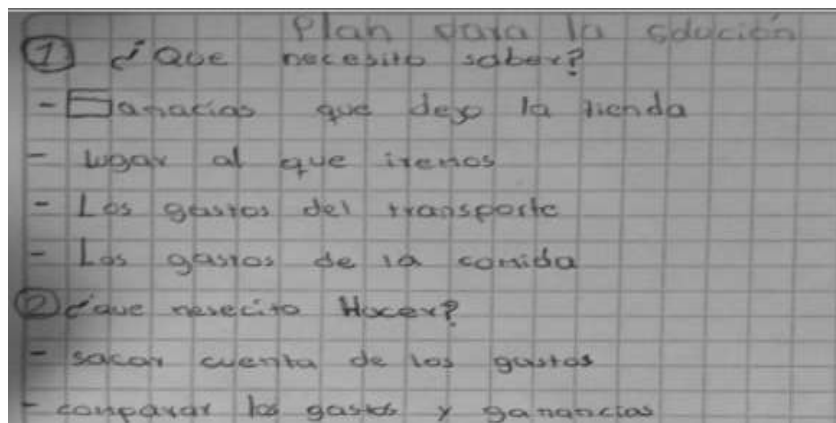 Plan para la solución
① ¿Que necesito saber?
- Ganacias que dejo la tienda
- Lugar al que iremos
- Los gastos del transporte
- Los gastos de la comida
② ¿que nesecito Hacer?
- sacar cuenta de los gastos
- comparar los gastos y ganancias